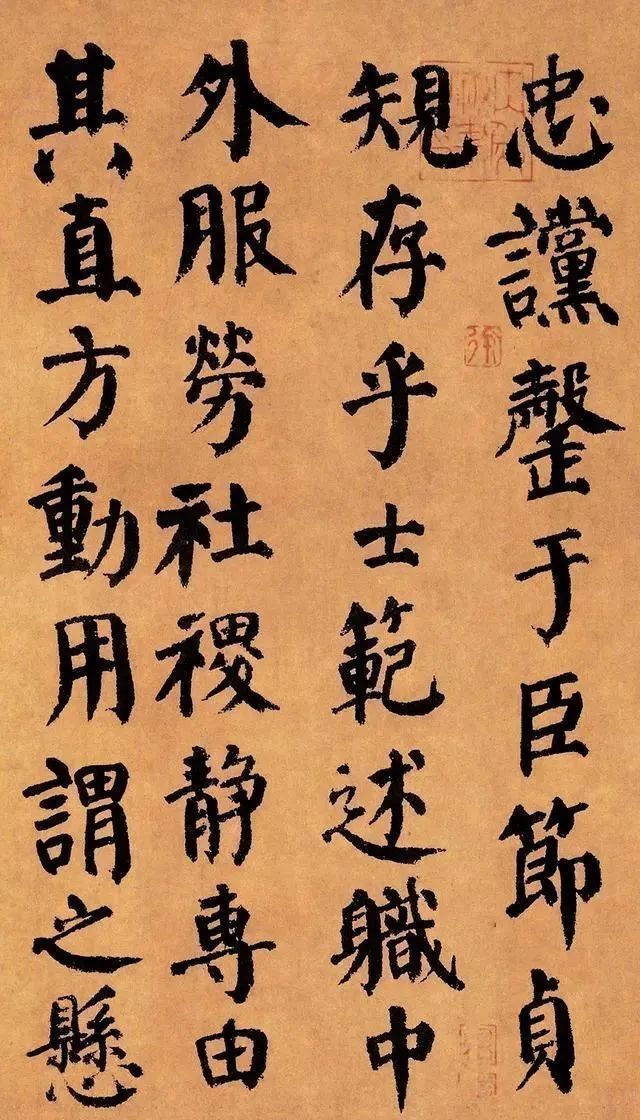 忠讜罄于臣節貞
規存乎士範述職中
外服勞社稷静專由
其直方動用謂之懸